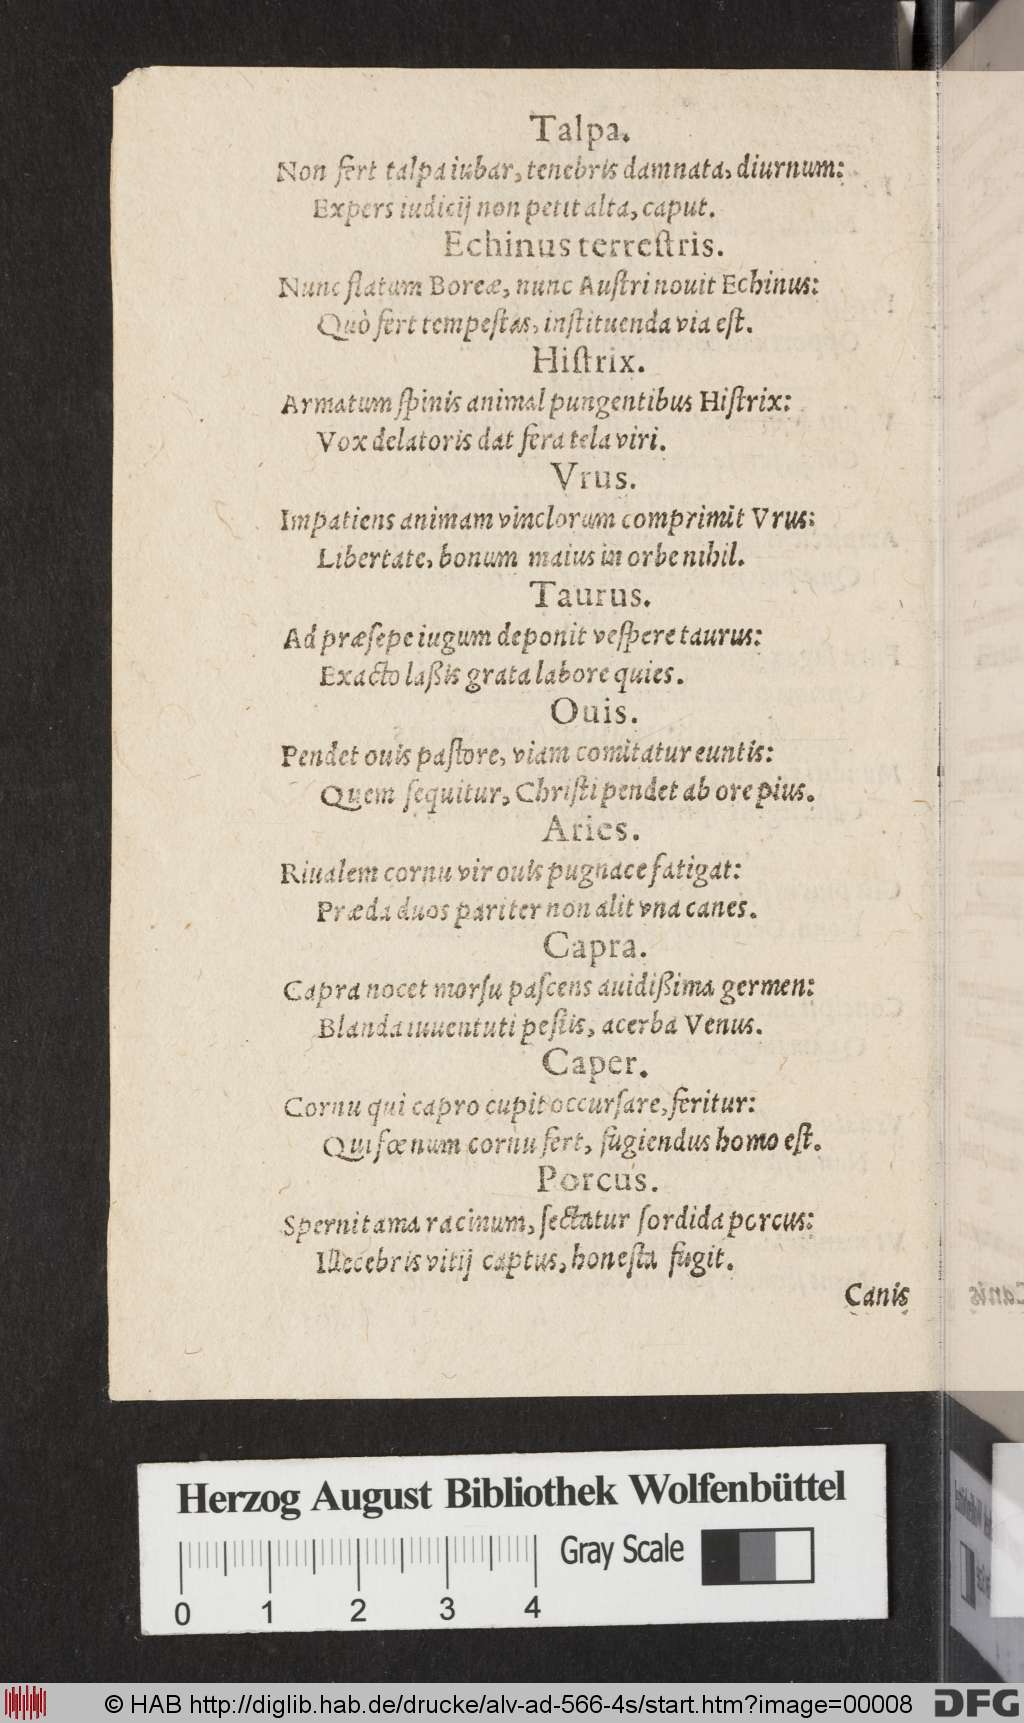 Talpa.
Non fert talpa iubar, tenebris damnata, diurnum:
Expers iudicij non petit alta, caput.
Echinus terreſtris.
Nunc flatum Boreæ, nunc Auſtri nouit Echinus:
Quò fert tempeſtas, inſtituenda via eſt.
Hiſtrix.
Armatum ſpinis animal pungentibus Hiſtrix:
Vox delatoris dat fera tela viri.
Vrus.
Impatiens animam vinclorum comprimit Vrus:
Libertate, bonum maius in orbe nihil.
Taurus.
Ad præſepe iugum deponit veſpere taurus:
Exacto laßis grata labore quies.
Ouis.
Pendet ouis paſtore, viam comitatur euntis:
Quem ſequitur, Chriſti pendet ab ore pius.
Aries.
Riualem cornu vir ouis pugnace fatigat:
Præda duos pariter non alit vna canes.
Capra.
Capra nocet morſu paſcens auidißima germen:
Blanda iuuentuti peſtis, acerba Venus.
Caper.
Cornu qui capro cupit occurſare, feritur:
Qui fœnum cornu fert, fugiendus homo eſt.
Porcus.
Spernit amaracinum, ſectatur ſordida porcus:
Illecebris vitij captus, honeſta fugit.
Canis
Herzog August Bibliothek Wolfenbüttel
Gray Scale
0 1 2 3 4
© HAB http://diglib.hab.de/drucke/alv-ad-566-4s/start.htm?image=00008
DFG